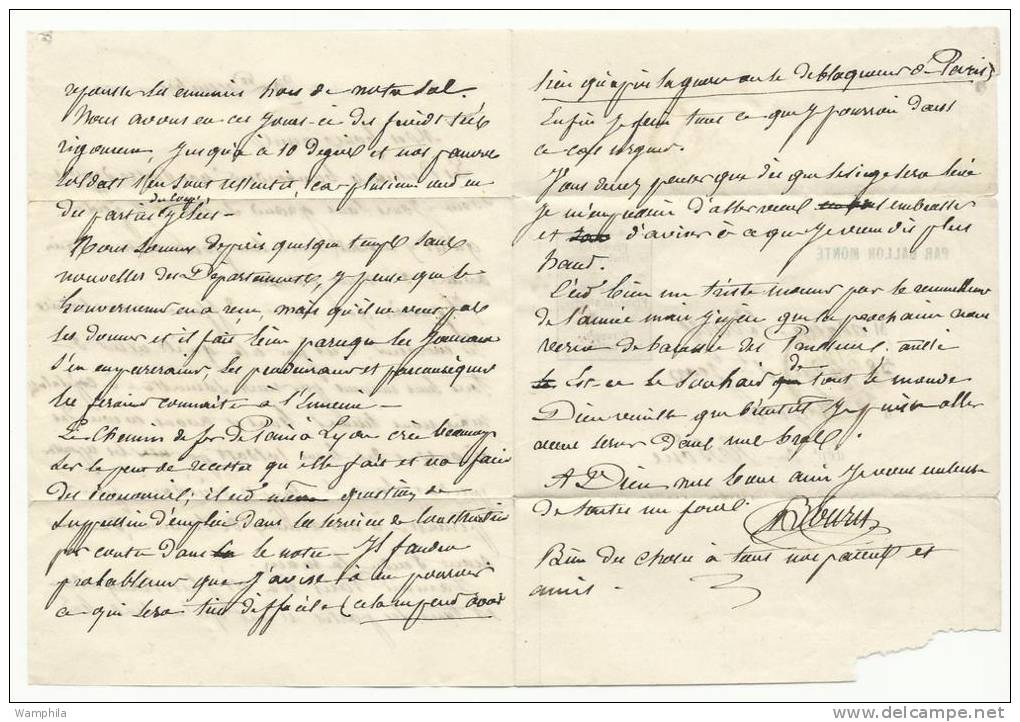 repousser les ennemis hors de notre sol.
Nous avons eu ces jours-ci des froids très
rigoureux, jusqu'à 10 degrés et nos pauvres
soldats s'en sont ressentis, car plusieurs ont eu
des parties du corps gelées -
Nous sommes depuis quelque temps sans
nouvelles des Départements, je pense que le
Gouvernement en a reçu, mais qu'il ne veut pas
les donner et il fait bien parceque les journaux
s'en empareraient, les produiraient et par conséquent
les feraient connaître à l'Ennemi -
Le Chemin de fer de Paris à Lyon crie beaucoup
sur le peu de recettes qu'elle fait et va faire
des économies; il est même question de
suppression d'emplois dans les services de Construction
par conte dans le notre - Il faudra
probablement que j'avise à me pourvoir
ce qui sera très difficile (cela ne peut avoir
lieu qu'après la guerre ou le débloquement de Paris)
Enfin je ferai tout ce que je pourrai dans
ce cas
Vous devez penser que dès que le siège sera levé
je m'empresserai d'aller vous embrasser
et d'aviser à ce que je viens de dire plus
haut.
C'est bien un triste moment pour le renouvellement
de l'année mais j'espère que la prochaine nous
verra débarrassé des Prussiens. aussi
Est-ce le souhait de tout le monde
Dieu veuille que bientôt je puisse aller
vous serrer dans mes bras.
A Dieu mes bons amis je vous embrasse
de toutes mes forces.
Bien des choses à tous nos parents et
amis -
PAR BALLON MONTÉ
Wamphila
www.delcampe.net